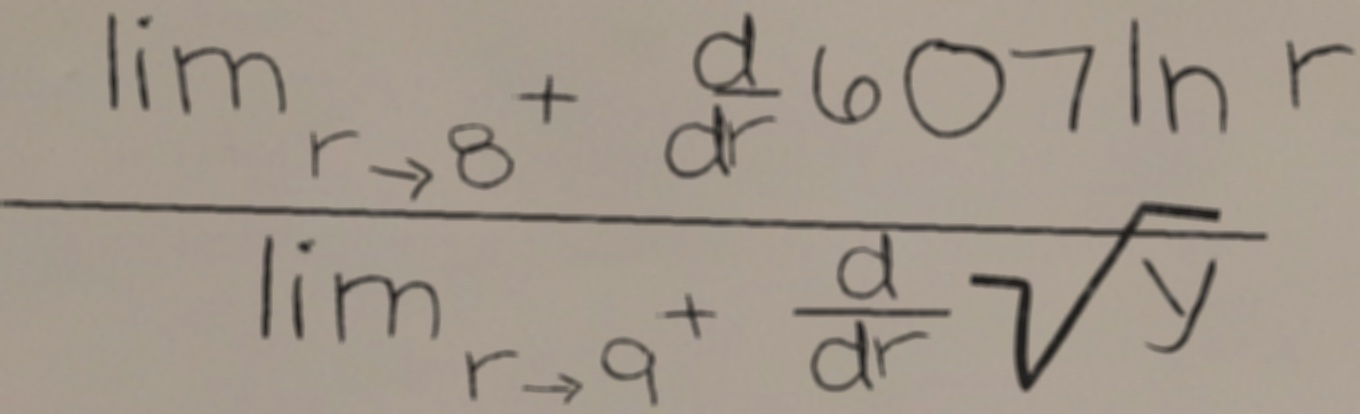 lim r→8⁺ d/dr 607 ln r
lim r→9⁺ d/dr √y